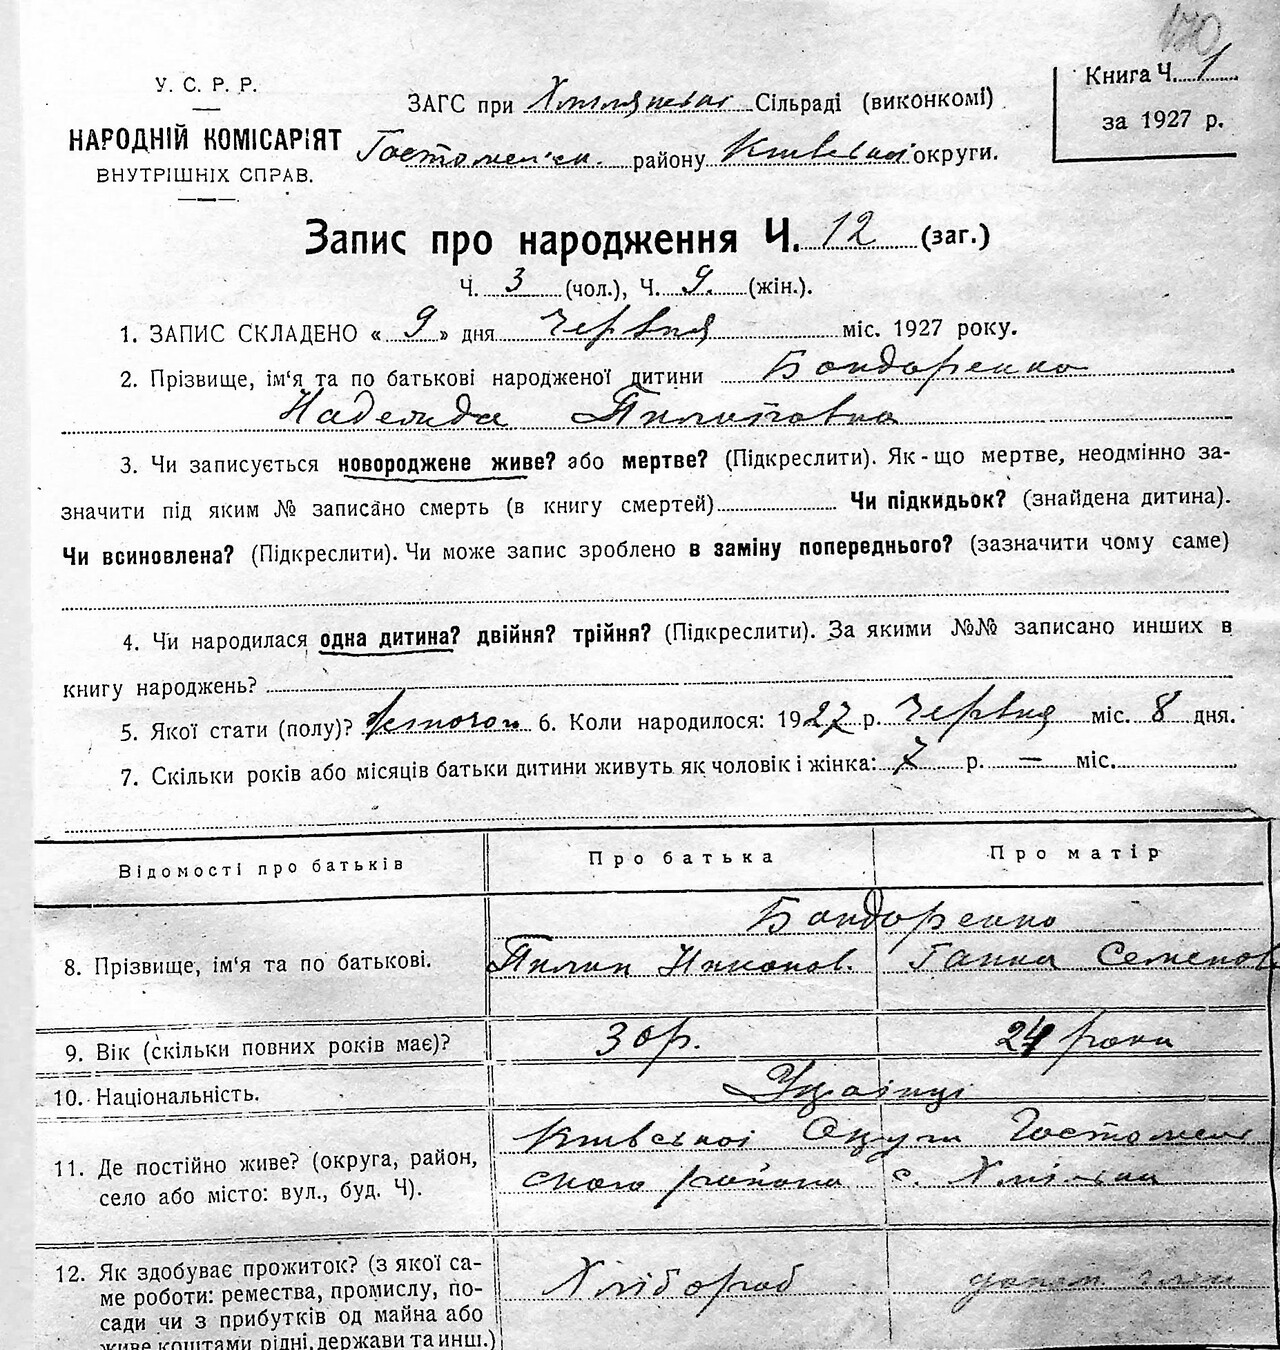 170
У. С. Р. Р.
НАРОДНІЙ КОМІСАРІЯТ
ВНУТРІШНІХ СПРАВ.
ЗАГС при Сільраді (виконкомі)
Гостомельськ. району Київської округи.
Книга Ч. 1
за 1927 р.
Запис про народження Ч. 12 (заг.)
Ч. 3 (чол.), Ч. 9. (жін.).
1. ЗАПИС СКЛАДЕНО « 9 » дня червня міс. 1927 року.
2. Прізвище, ім‘я та по батькові народженої дитини Бондаренко
Надежда Пилиповна
3. Чи записується новороджене живе? або мертве? (Підкреслити). Як-що мертве, неодмінно за-
значити під яким № записано смерть (в книгу смертей) Чи підкидьок? (знайдена дитина).
Чи всиновлена? (Підкреслити). Чи може запис зроблено в заміну попереднього? (зазначити чому саме)
4. Чи народилася одна дитина? двійня? трійня? (Підкреслити). За якими №№ записано инших в
книгу народжень?
5. Якої стати (полу)? 6. Коли народилося: 1927 р. Червня міс. 8 дня.
7. Скільки років або місяців батьки дитини живуть як чоловік і жінка: 7 р. — міс.
Відомості про батьків Про батька Про матір
Бондаренко
8. Прізвище, ім‘я та по батькові. Пилип Никонов. Ганна Семенов
9. Вік (скільки повних років має)? 30 р. 24 роки
10. Національність. Українці
Київської Округи Гостомель
11. Де постійно живе? (округа, район, ского района с. Хмільна
село або місто: вул., буд. Ч).
12. Як здобуває прожиток? (з якої са- Хлібороб
ме роботи: ремества, промислу, по-
сади чи з прибутків од майна або
живе коштами рідні, держави та инш.)